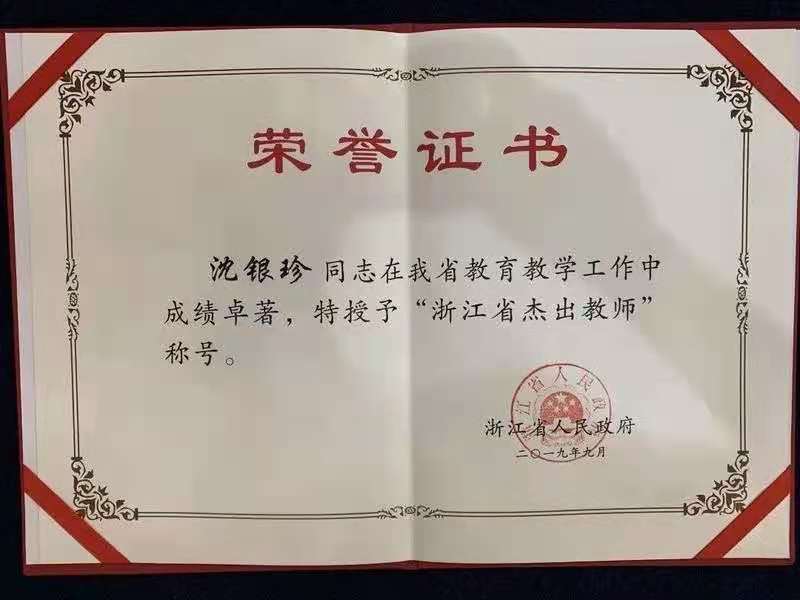 荣誉证书
沈银珍 同志在我省教育教学工作中
成绩卓著，特授予“浙江省杰出教师”
称号。
浙江省人民政府
浙江省人民政府
二〇一九年九月